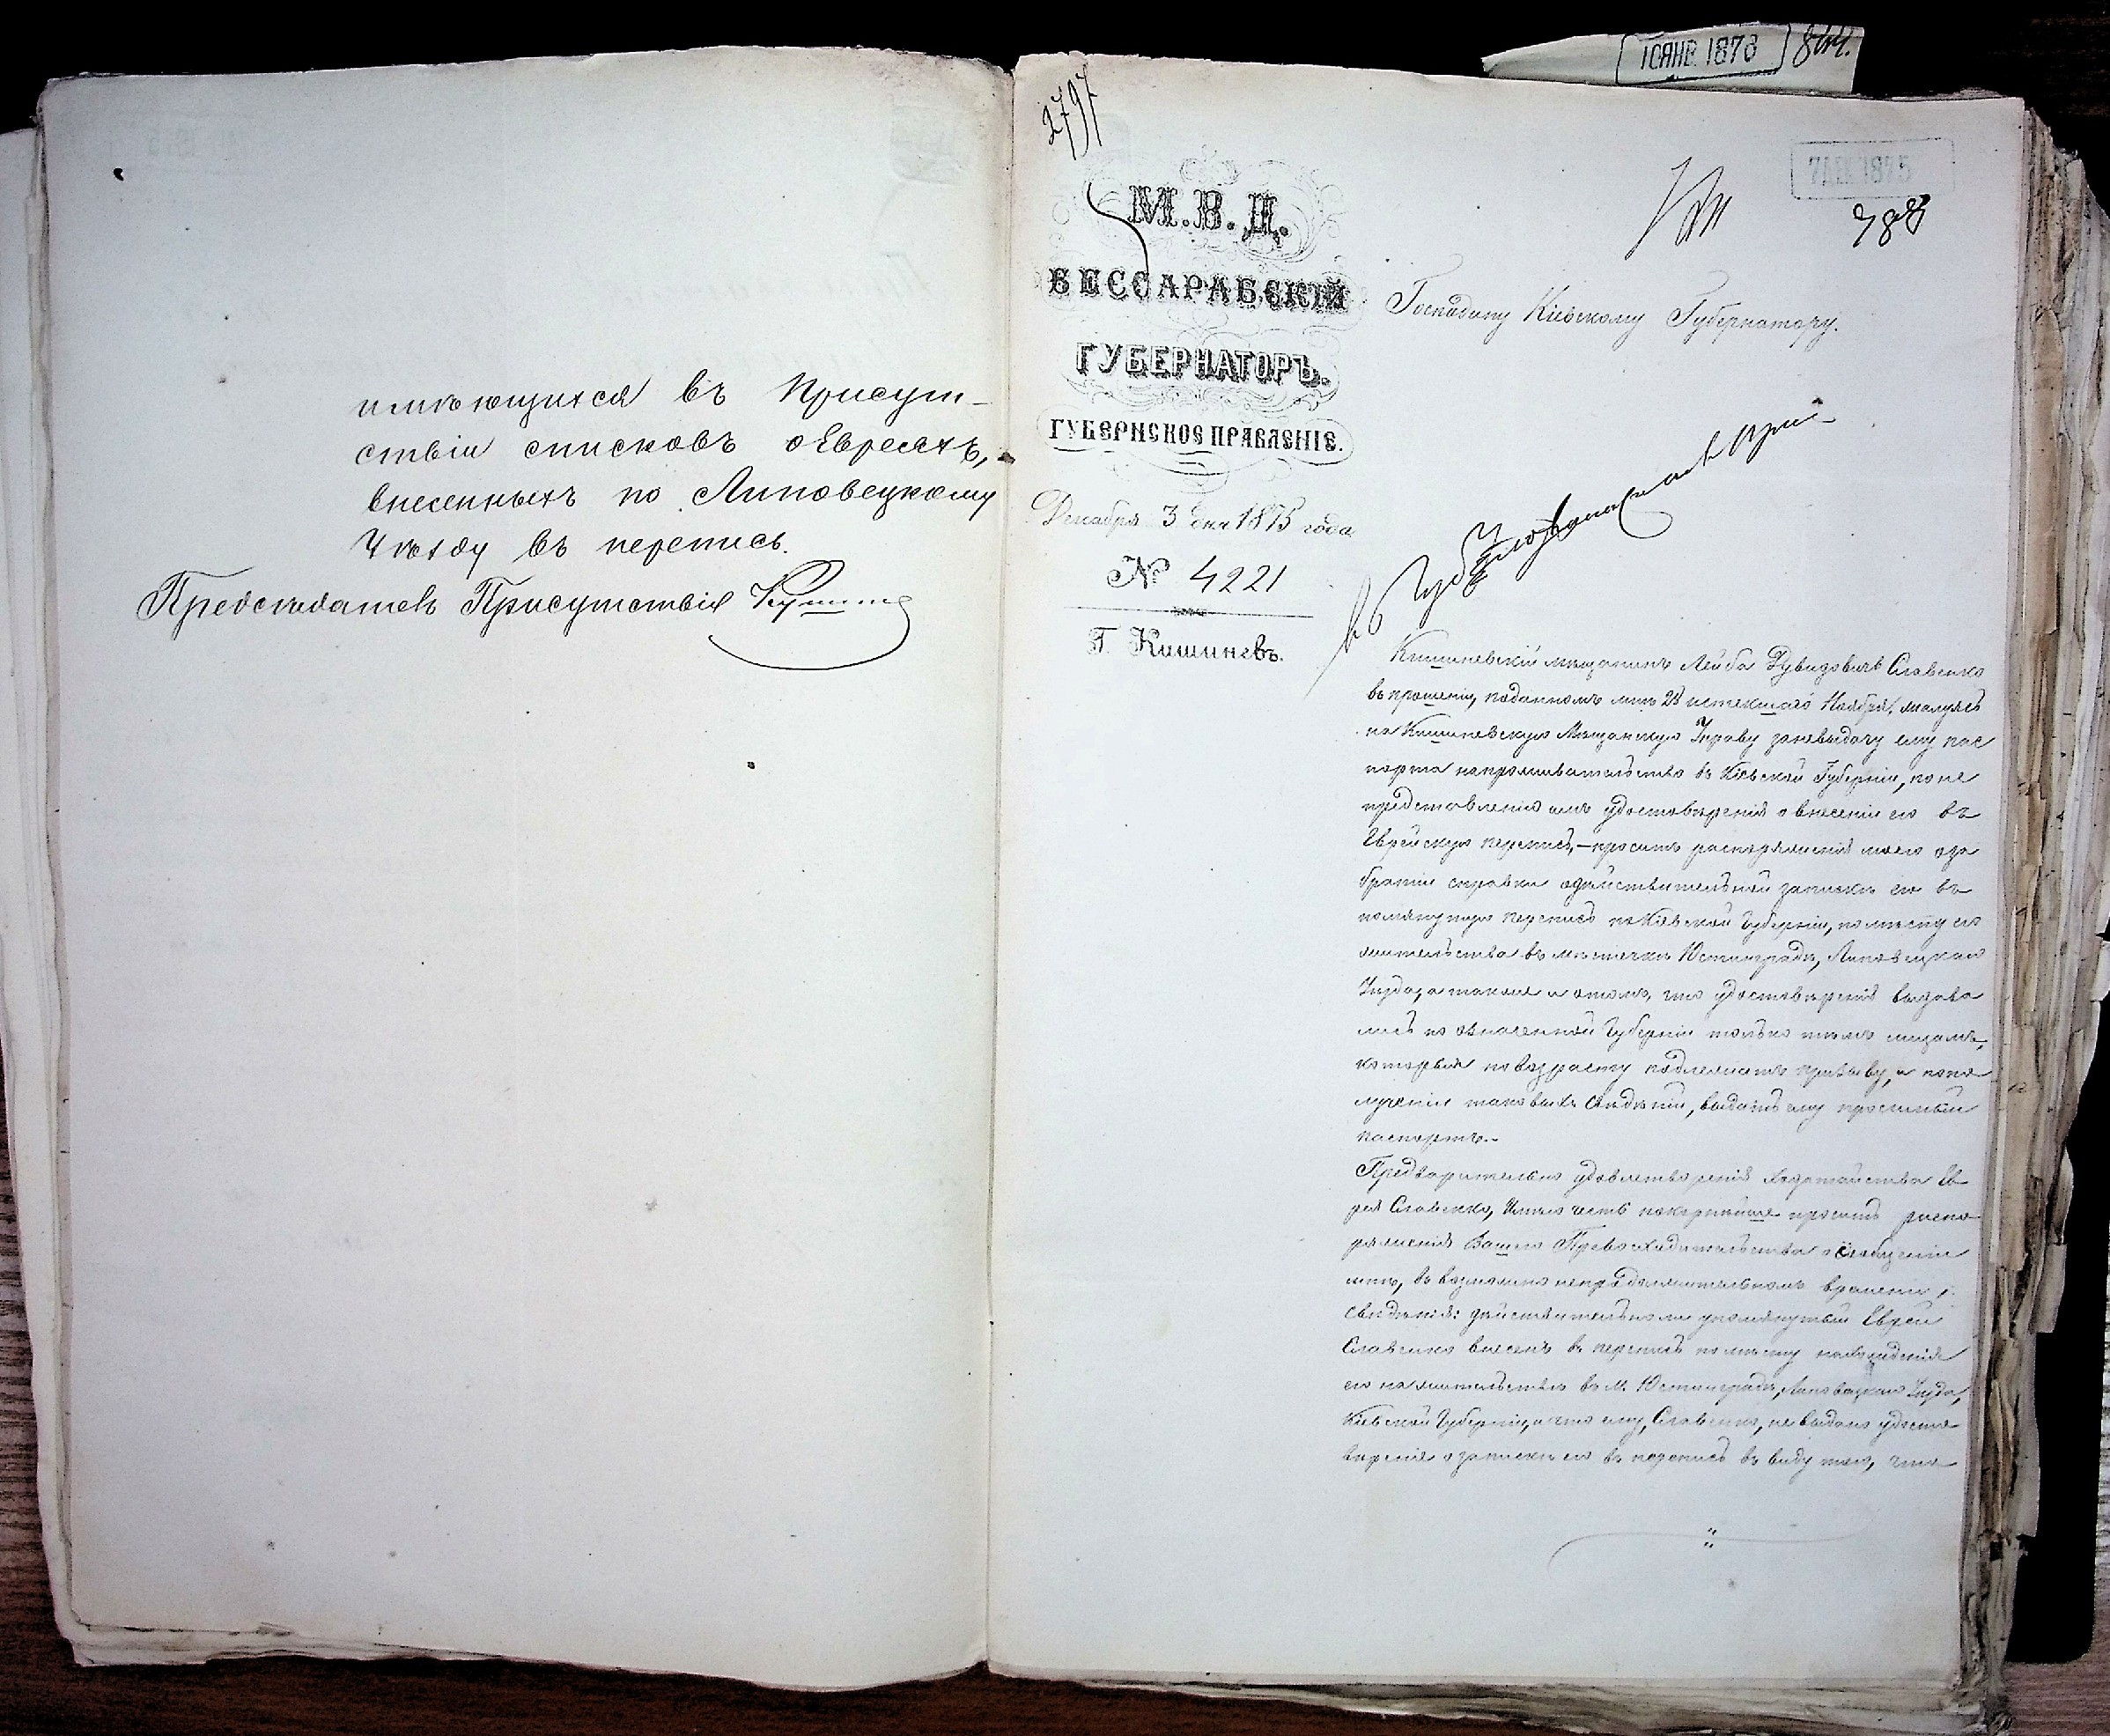 имѣющихся въ Присут-
ствіи списковъ о Евреяхъ,
внесенныхъ по Липовецкому
Уѣзду въ перепись.
Предсѣдатель Присутствія
10 ЯНВ. 1876
2797
7 ДЕК 1875
788
М.В.Д.
БЕССАРАБСКІЙ
ГУБЕРНАТОРЪ.
ГУБЕРНСКОЕ ПРАВЛЕНІЕ.
Декабря 3 дня 1875 года
№ 4221
Г. Кишиневъ.
Господину Кіевскому Губернатору.
Кишиневскій мѣщанинъ Лейба Дувидовичъ Славенко
въ прошеніи, поданномъ мнѣ 28 истекшаго Ноября, жалуясь
на Кишиневскую Мѣщанскую Управу за невыдачу ему пас
порта на проживательство въ Кіевской Губерніи, по не
представленію имъ удостовѣренія о внесеніи его въ
Еврейскую перепись, — проситъ распоряженія моего о со
браніи справки о дѣйствительной запискѣ его въ
помянутую перепись по Кіевской Губерніи, по мѣсту его
жительства въ мѣстечкѣ Юстинградѣ, Липовецкаго
Уѣзда, а также и о томъ, что удостовѣренія выдава
лись по означенной Губерніи только тѣмъ лицамъ,
которыя по возрасту подлежатъ призыву, и по по
лученіи таковыхъ свѣдѣній, выдать ему просимый
паспортъ.-
Предварительно удовлетворенія ходатайства Ев
рея Славенко, имѣю честь покорнѣйше просить распо
ряженія Вашего Превосходительства о сообщеніи
мнѣ, въ возможно непродолжительномъ времени,
свѣдѣнія: дѣйствительно ли упомянутый Еврей
Славенко внесенъ въ перепись по мѣсту нахожденія
его на жительствѣ въ м. Юстинградѣ, Липовецкаго Уѣзда,
Кіевской Губерніи, и что ему, Славенко, не выдано удосто
вѣреніе о запискѣ его въ перепись въ виду того, что